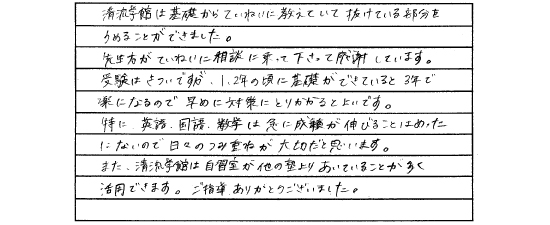 清流学館は基礎からていねいに教えていて抜けている部分を
うめることができました。
先生方がていねいに相談に乗って下さって感謝しています。
受験はきついですが、1、2年の頃に基礎ができていると3年で
楽になるので早めに対策にとりかかるとよいです。
特に、英語、国語、数学は急に成績が伸びることはめった
にないので日々のつみ重ねが大切だと思います。
また、清流学館は自習室が他の塾よりあいていることが多く
活用できます。ご指導ありがとうございました。